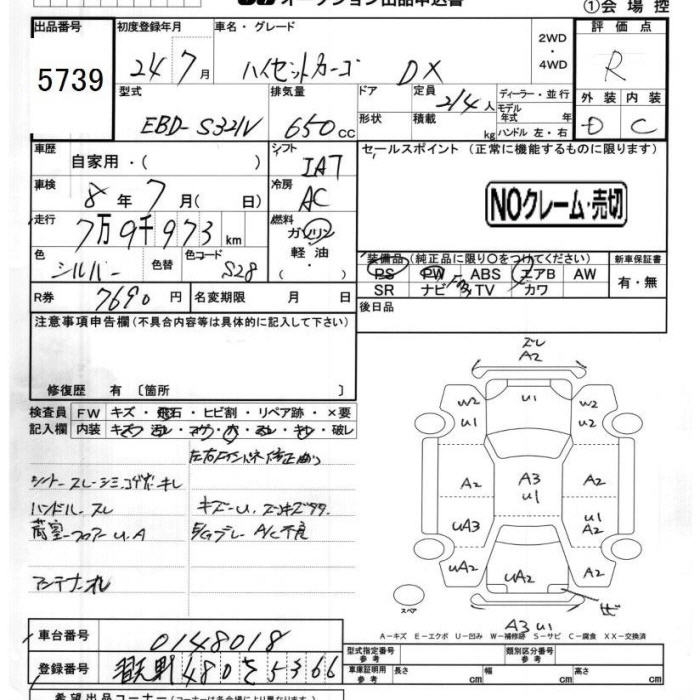 オークション出品申込書
①会場控
出品番号
5739
初度登録年月
24年7月
車名・グレード
ハイゼットカーゴ DX
2WD・4WD
評価点
R
型式
EBD-S321V
排気量
650cc
ドア
形状
定員
2/4人
積載
kg
ディーラー・並行
モデル年式 年
ハンドル 左・右
外装 内装
D C
車歴
自家用・( )
シフト
IAT
セールスポイント (正常に機能するものに限ります)
車検
8年7月( 日)
冷房
AC
NOクレーム・売切
走行
7万9千973km
燃料
ガソリン
軽油
・( )
色
シルバー
色替
色コード
S28
装備品(純正品に限り○をつけてください)
新車保証書
PS PW ABS エアB AW
有・無
SR ナビ TV カワ
R券
7690円
名変期限 月 日
後日品
注意事項申告欄(不具合内容等は具体的に記入して下さい)
修復歴 有 〔箇所 〕
検査員 FW キズ・飛石・ヒビ割・リペア跡・×要
記入欄 内装
ハンドル スレ
荷室フロアー U.A
A/C不良
アンテナ折れ
ズレ
A2
U1
W2
U1
W2
U2
A2
A3
U1
A2
UA3
U1
A2
UA2
UA2
A2
スペア
A3 U1
A-キズ E-エクボ U-凹み W-補修跡 S-サビ C-腐食 XX-交換済
車台番号
0148018
登録番号
480 を 5366
型式指定番号 参考
類別区分番号 参考
車庫証明用 参考
長さ cm
幅 cm
高さ cm
希望出品コーナー(コーナーは各会場により異なります)